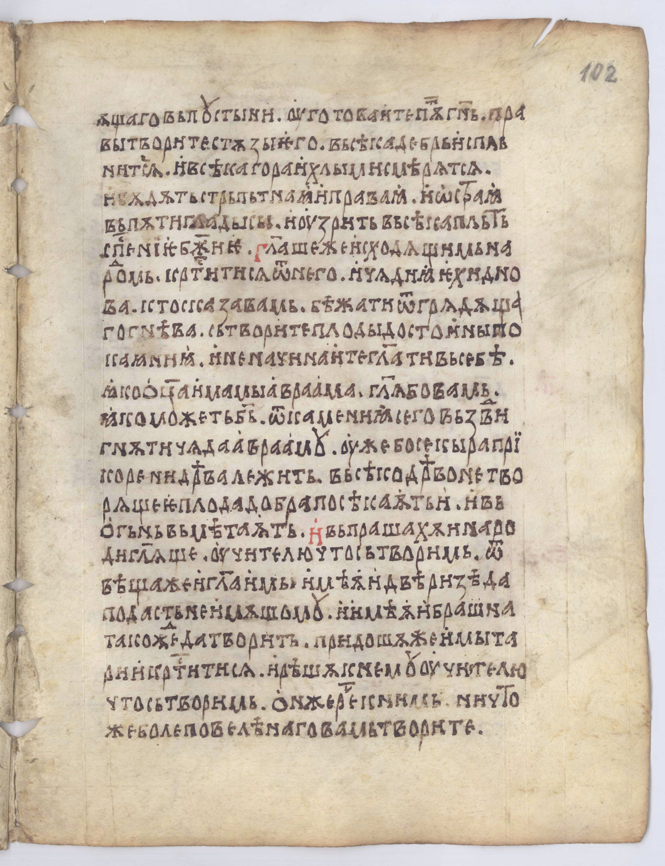 102
ѧщаговьпꙋстыни. ѹготоваитепѫ҃тгн҃ь. пра
вытворитестѧзыѥго. вьсѣкадебрьисплъ
нитсѧ. ивсѣкагораихльмисмѣрѧтсѧ.
ибѫдѫтьстрьпьтнаꙗ҆ ип́равaꙗ. иѡстраꙗ
вьпѫтигладькы. иоузритьвьсѣкапльть
сп҃сениѥбж҃иѥ. гл҃ашежеисходѧщимьна
рѡдмь. крⷭ҇титисѧѿнего. ищѧдиꙗѥхидно
ва. ктосказавамь. бѣжатиѿгрѧдѫща
гогнѣва. сьтворитеплодыдостоиныпо
каꙗниꙗ. иненачинаитегл҃ативьсебѣ.
ꙗкоо҃цаимамыавраама. гл҃ѫбовамь.
ꙗкоможетьб҃ь. ѿкамениꙗсеговьздви
гнѫтичѧдаавраамꙋ. оужебосекыраприї
корениидрѣвалежить. вьсѣкодрѣвонетво
рѧщеѥплодадобрапосѣкаѫтьи. ивь
огьньвьмѣтаѫть. ивьпрашахѫинаро
диглѧ҃ще. оучителючтосьтворимь. ѿ
вѣщажеигл҃аимь. имѣѧидвѣризѣда
подастьнеимѫщомꙋ. иимѣѧибрашна
такождетворить. придошѫжеимыта
рикрⷭ҇титисѧ. ирѣшѫкнемꙋоучителю
чтосьтворимь. онжереⷱ҇книмь. ничто
жеболеповелѣнаговамьтворите.